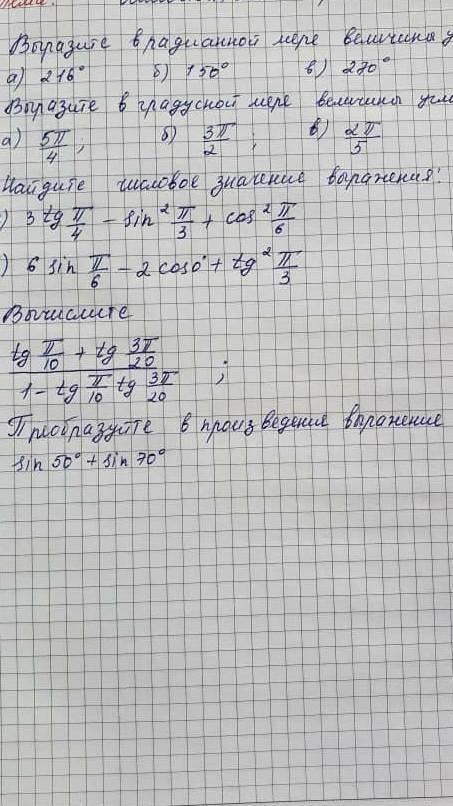 Выразите в радианной мере величины у
а) 216° б) 150° в) 270°
Выразите в градусной мере величины угл
а) 5π/4 ; б) 3π/2 ; в) 2π/5
Найдите числовое значение выражения:
) 3 tg π/4 - sin² π/3 + cos² π/6
) 6 sin π/6 - 2 cos 0° + tg² π/3
Вычислите
tg π/10 + tg 3π/20
1 - tg π/10 tg 3π/20 ;
Преобразуйте в произведение выражение
sin 50° + sin 70°